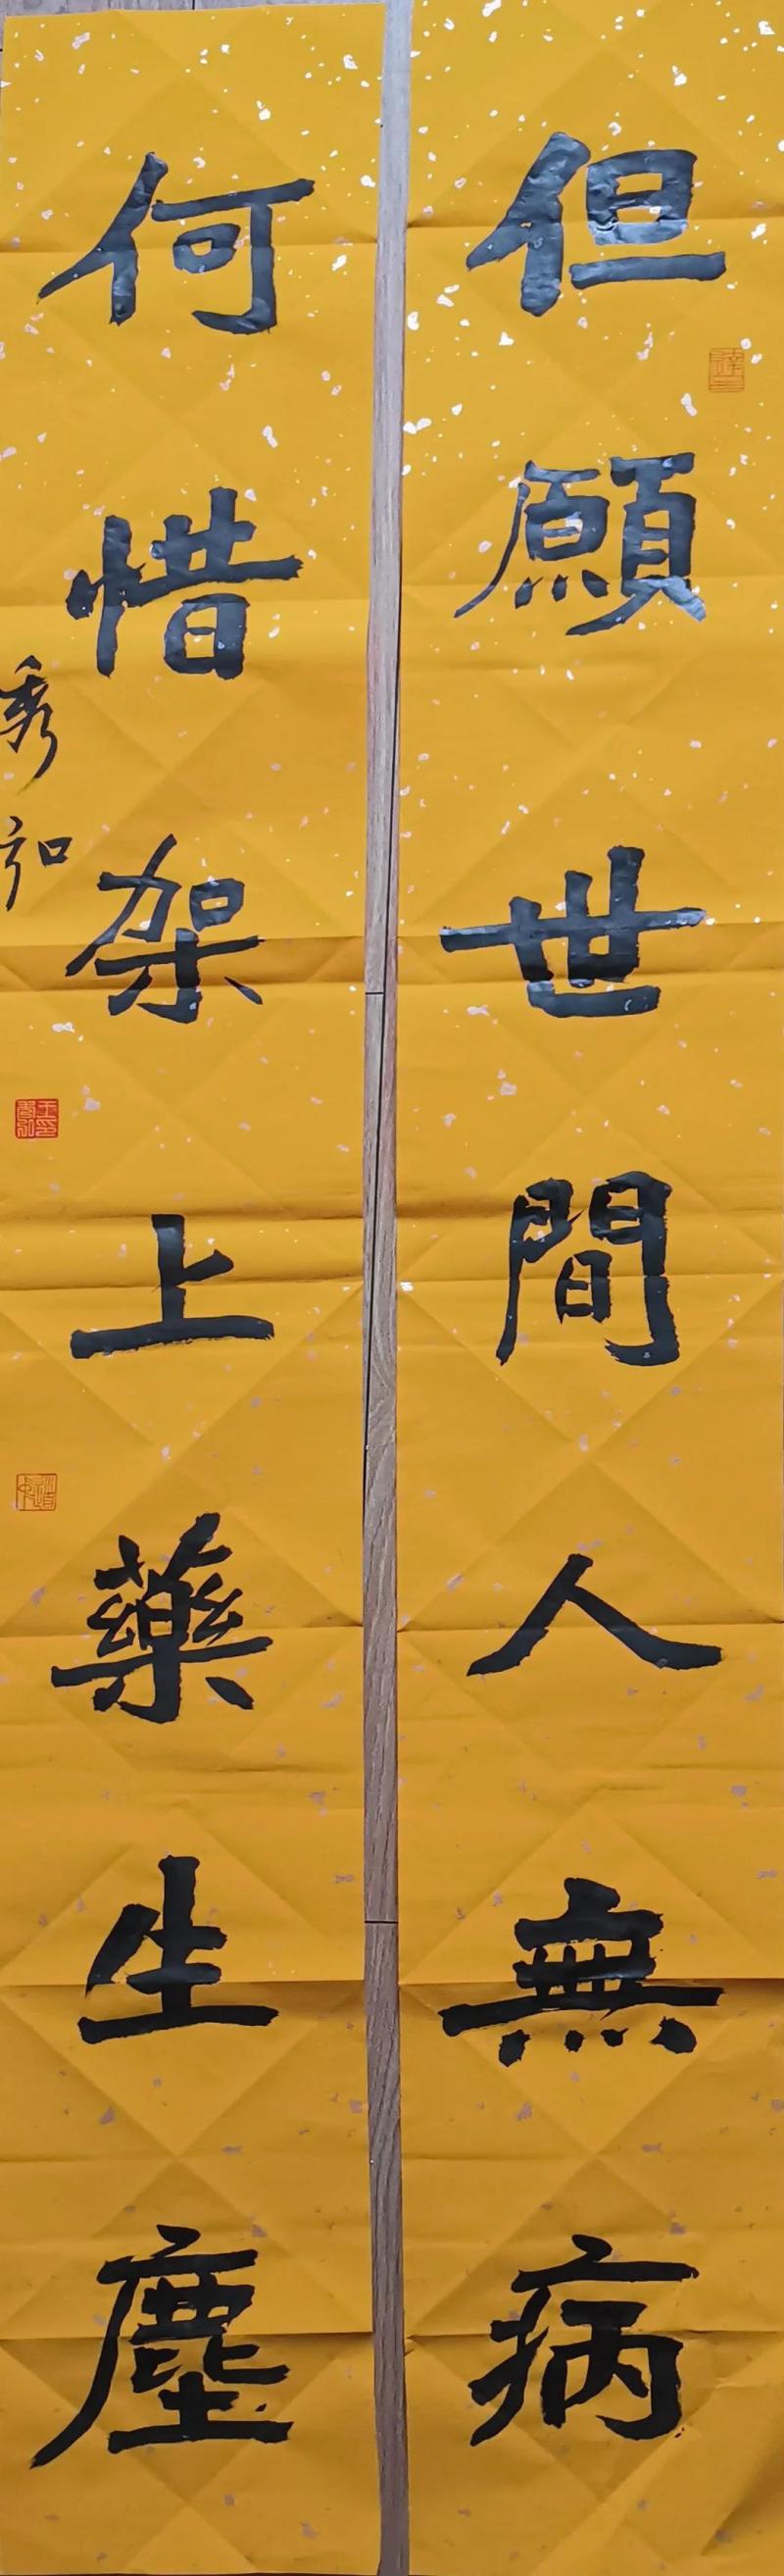 但願世間人無病
何惜架上藥生塵
秀弘